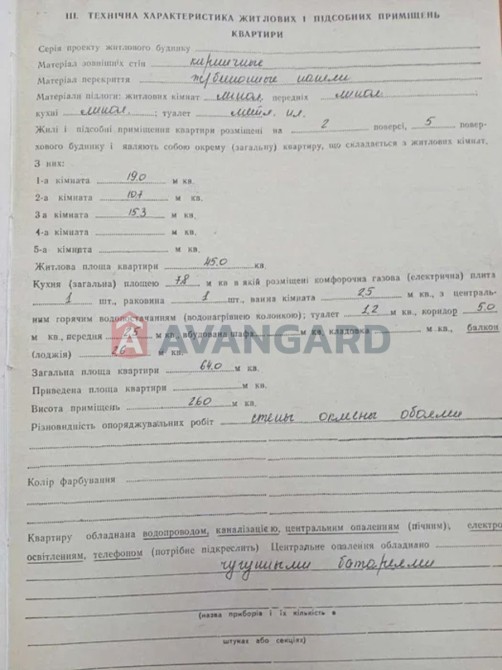 III. ТЕХНІЧНА ХАРАКТЕРИСТИКА ЖИТЛОВИХ І ПІДСОБНИХ ПРИМІЩЕНЬ
КВАРТИРИ
Серія проекту житлового будинку
Матеріал зовнішніх стін кирпичные
Матеріал перекриття панели
Матеріали підлоги: житлових кімнат линол, передніх линол.
кухні линол. ; туалет метл. пл.
Жилі і підсобні приміщення квартири розміщені на 2 поверсі, 5 повер-
хового будинку і являють собою окрему (загальну) квартиру, що складається з житлових кімнат,
З них:
1-а кімната 19.0 м кв.
2-а кімната 10.7 м кв.
3а кімната 15.3 м кв.
4-а кімната м кв.
5-а кімната м кв.
Житлова площа квартири 45.0 кв.
Кухня (загальна) площею 7.8 м кв в якій розміщені комфорочна газова (електрична) плита
1 шт., раковина 1 шт., ванна кімната 2.5 м кв., з централь-
ним горячим водопостачанням (водонагрівною колонкою); туалет 1.2 м кв., коридор 5.0
м кв., передня 2.5 м кв., вбудована шафа м кв. кладовка м кв., балкон
(лоджія) 2.6 м кв.
AVANGARD
Загальна площа квартири 64.0 м кв.
Приведена площа квартири м кв.
Висота приміщень 2.60 м кв.
Різновидність опоряджувальних робіт стены оклеены обоями
Колір фарбування
Квартиру обладнана водопроводом, каналізацією, центральним опаленням (пічним); електро
освітленням, телефоном (потрібне підкреслить) Центральне опалення обладнано
чугунными батареями
(назва приборів і їх кількість в
штуках або секціях)